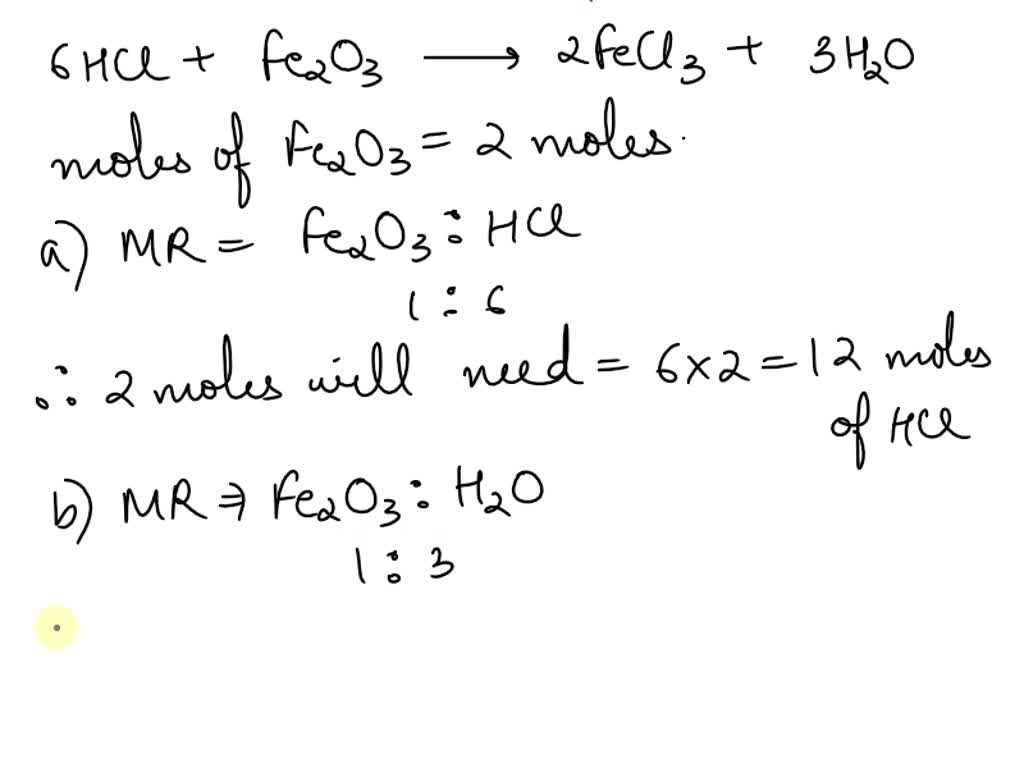 6HCl + Fe₂O₃ → 2FeCl₃ + 3H₂O
moles of Fe₂O₃ = 2 moles.
a) MR = Fe₂O₃ : HCl
1 : 6
∴ 2 moles will need = 6×2 = 12 moles
of HCl
b) MR ⇒ Fe₂O₃ : H₂O
1 : 3